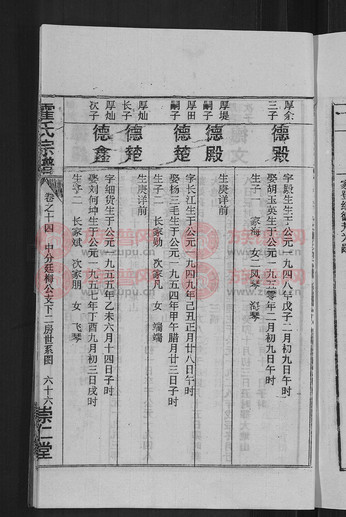 厚余三子 德殿
字殿生于公元一九四八年戊子二月初九日午时
娶胡玉英生于公元一九五零年二月初九日午时
生子一 家海 女二 凤琴 海琴
厚堤嗣子 德殿
生庚详前
厚田嗣子 德楚
字长江生于公元一九四九年己丑正月廿八日午时
娶杨三毛生于公元一九五四年甲午腊月廿三日子时
生子二 长家勋 次家凡 女 端端
厚灿长子 德楚
生庚详前
厚灿次子 德鑫
字细货生于公元一九五五年乙未六月十四日子时
娶刘何坤生于公元一九五七年丁酉九月初三日戌时
生子二 长家斌 次家朋 女 飞琴
霍氏宗谱
卷之十四 中分廷梅公支下二房世系图 六十六
崇仁堂